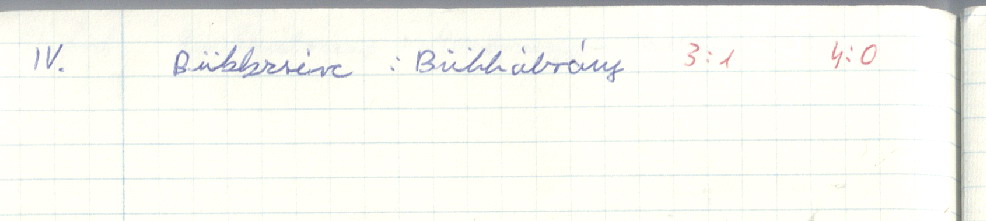 IV. Bükkzsérc : Bükkábrány 3:1 4:0